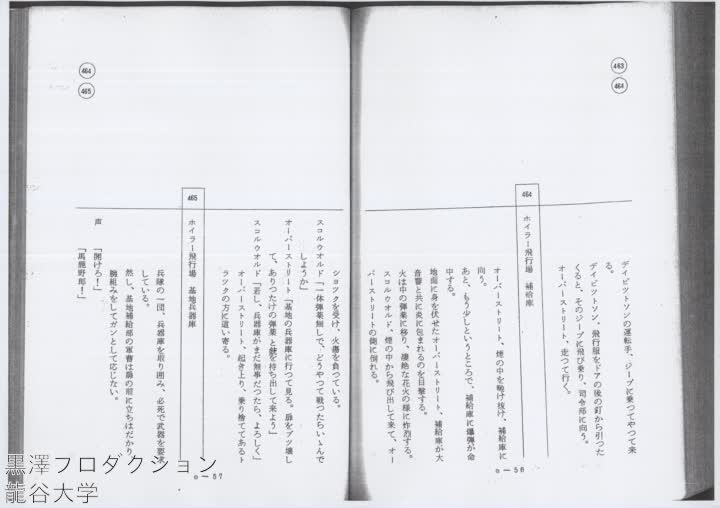 463
464
デイビットソンの運転手、ジープに乗つてやつて来
る。
デイビットソン、飛行服をドアの後の釘から引つた
くると、そのジープに飛び乗り、司令部に向う。
オーバーストリート、走つて行く。
464 ホイラー飛行場 補給庫
オーバーストリート、煙の中を駈け抜け、補給庫に
向う。
あと、もう少しというところで、補給庫に爆弾が命
中する。
地面に身を伏せたオーバーストリート、補給庫が大
音響と共に炎に包まれるのを目撃する。
火は中の弾薬に移り、凄絶な花火の様に炸烈する。
スコルウオルド、煙の中から飛び出して来て、オー
バーストリートの側に倒れる。
o—56
464
465
シヨツクを受け、火傷を負つている。
スコルウオルド「一体弾薬無しで、どうやつて戦つたらいゝんで
しようか」
オーバーストリート「基地の兵器庫に行つて見る。扉をブツ壊し
て、ありつたけの弾薬と銃を持ち出して来よう」
スコルウオルド「若し、兵器庫がまだ無事だつたら、よろしく」
オーバーストリート、起き上り、乗り捨ててあるト
ラツクの方に這い寄る。
465 ホイラー飛行場 基地兵器庫
兵隊の一団、兵器庫を取り囲み、必死で武器を要求
している。
然し、基地補給部の軍曹は扉の前に立ちはだかり、
腕組みをしてガンとして応じない。
声 「開けろ！」
「馬鹿野郎！」
o—57
黒澤プロダクション
龍谷大学